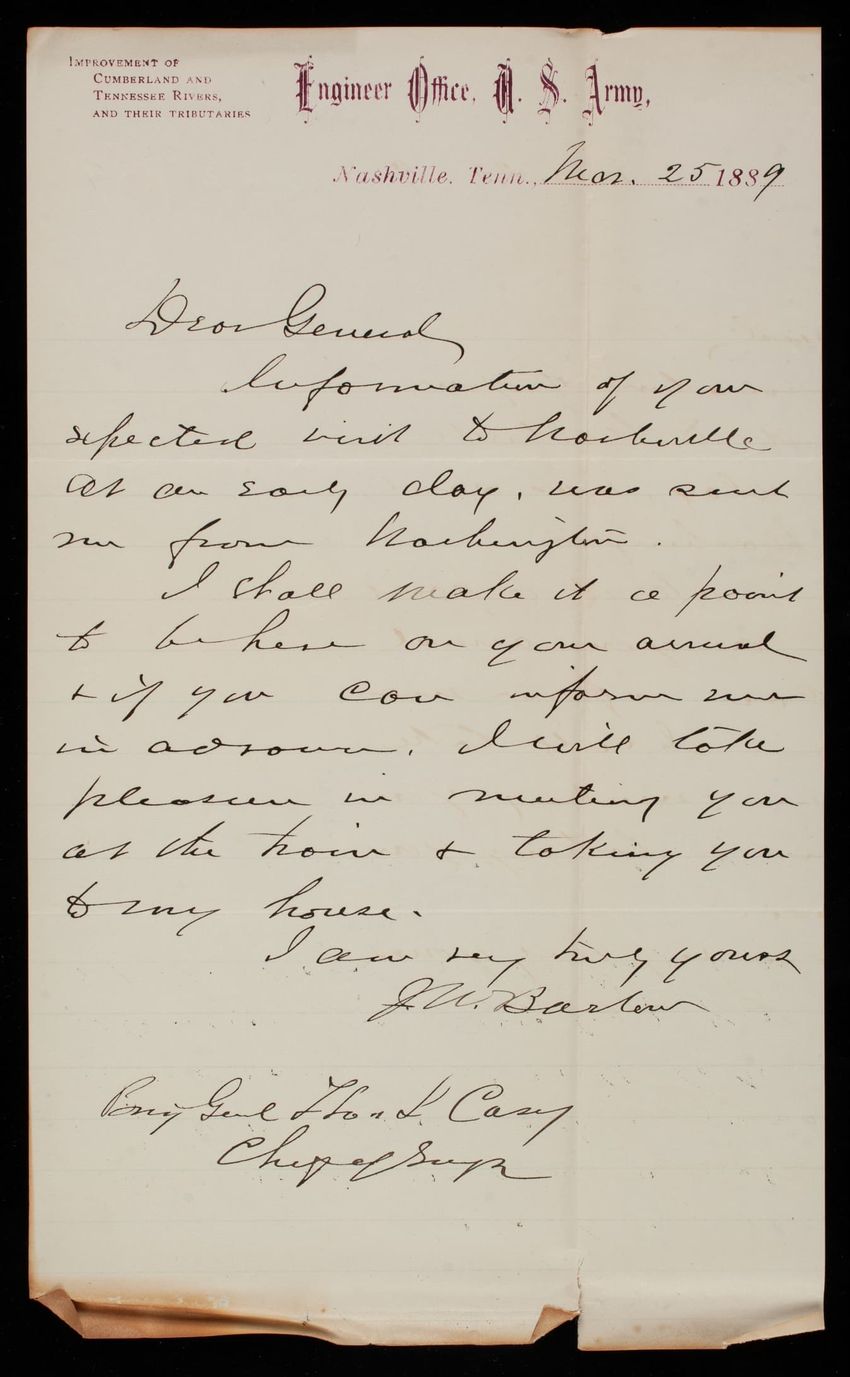 IMPROVEMENT OF
CUMBERLAND AND
TENNESSEE RIVERS,
AND THEIR TRIBUTARIES
Engineer Office, U. S. Army,
Nashville, Tenn., Mar. 25 1889
Dear General
Information of your
expected visit to Nashville
at an early day, was sent
me from Washington.
I shall make it a point
to be here on your arrival
& if you can inform me
in advance, I will take
pleasure in meeting you
at the train & taking you
to my house.
I am very truly yours
J. W. Barlow
Brig Genl Thos L Casey
Chief of Engrs